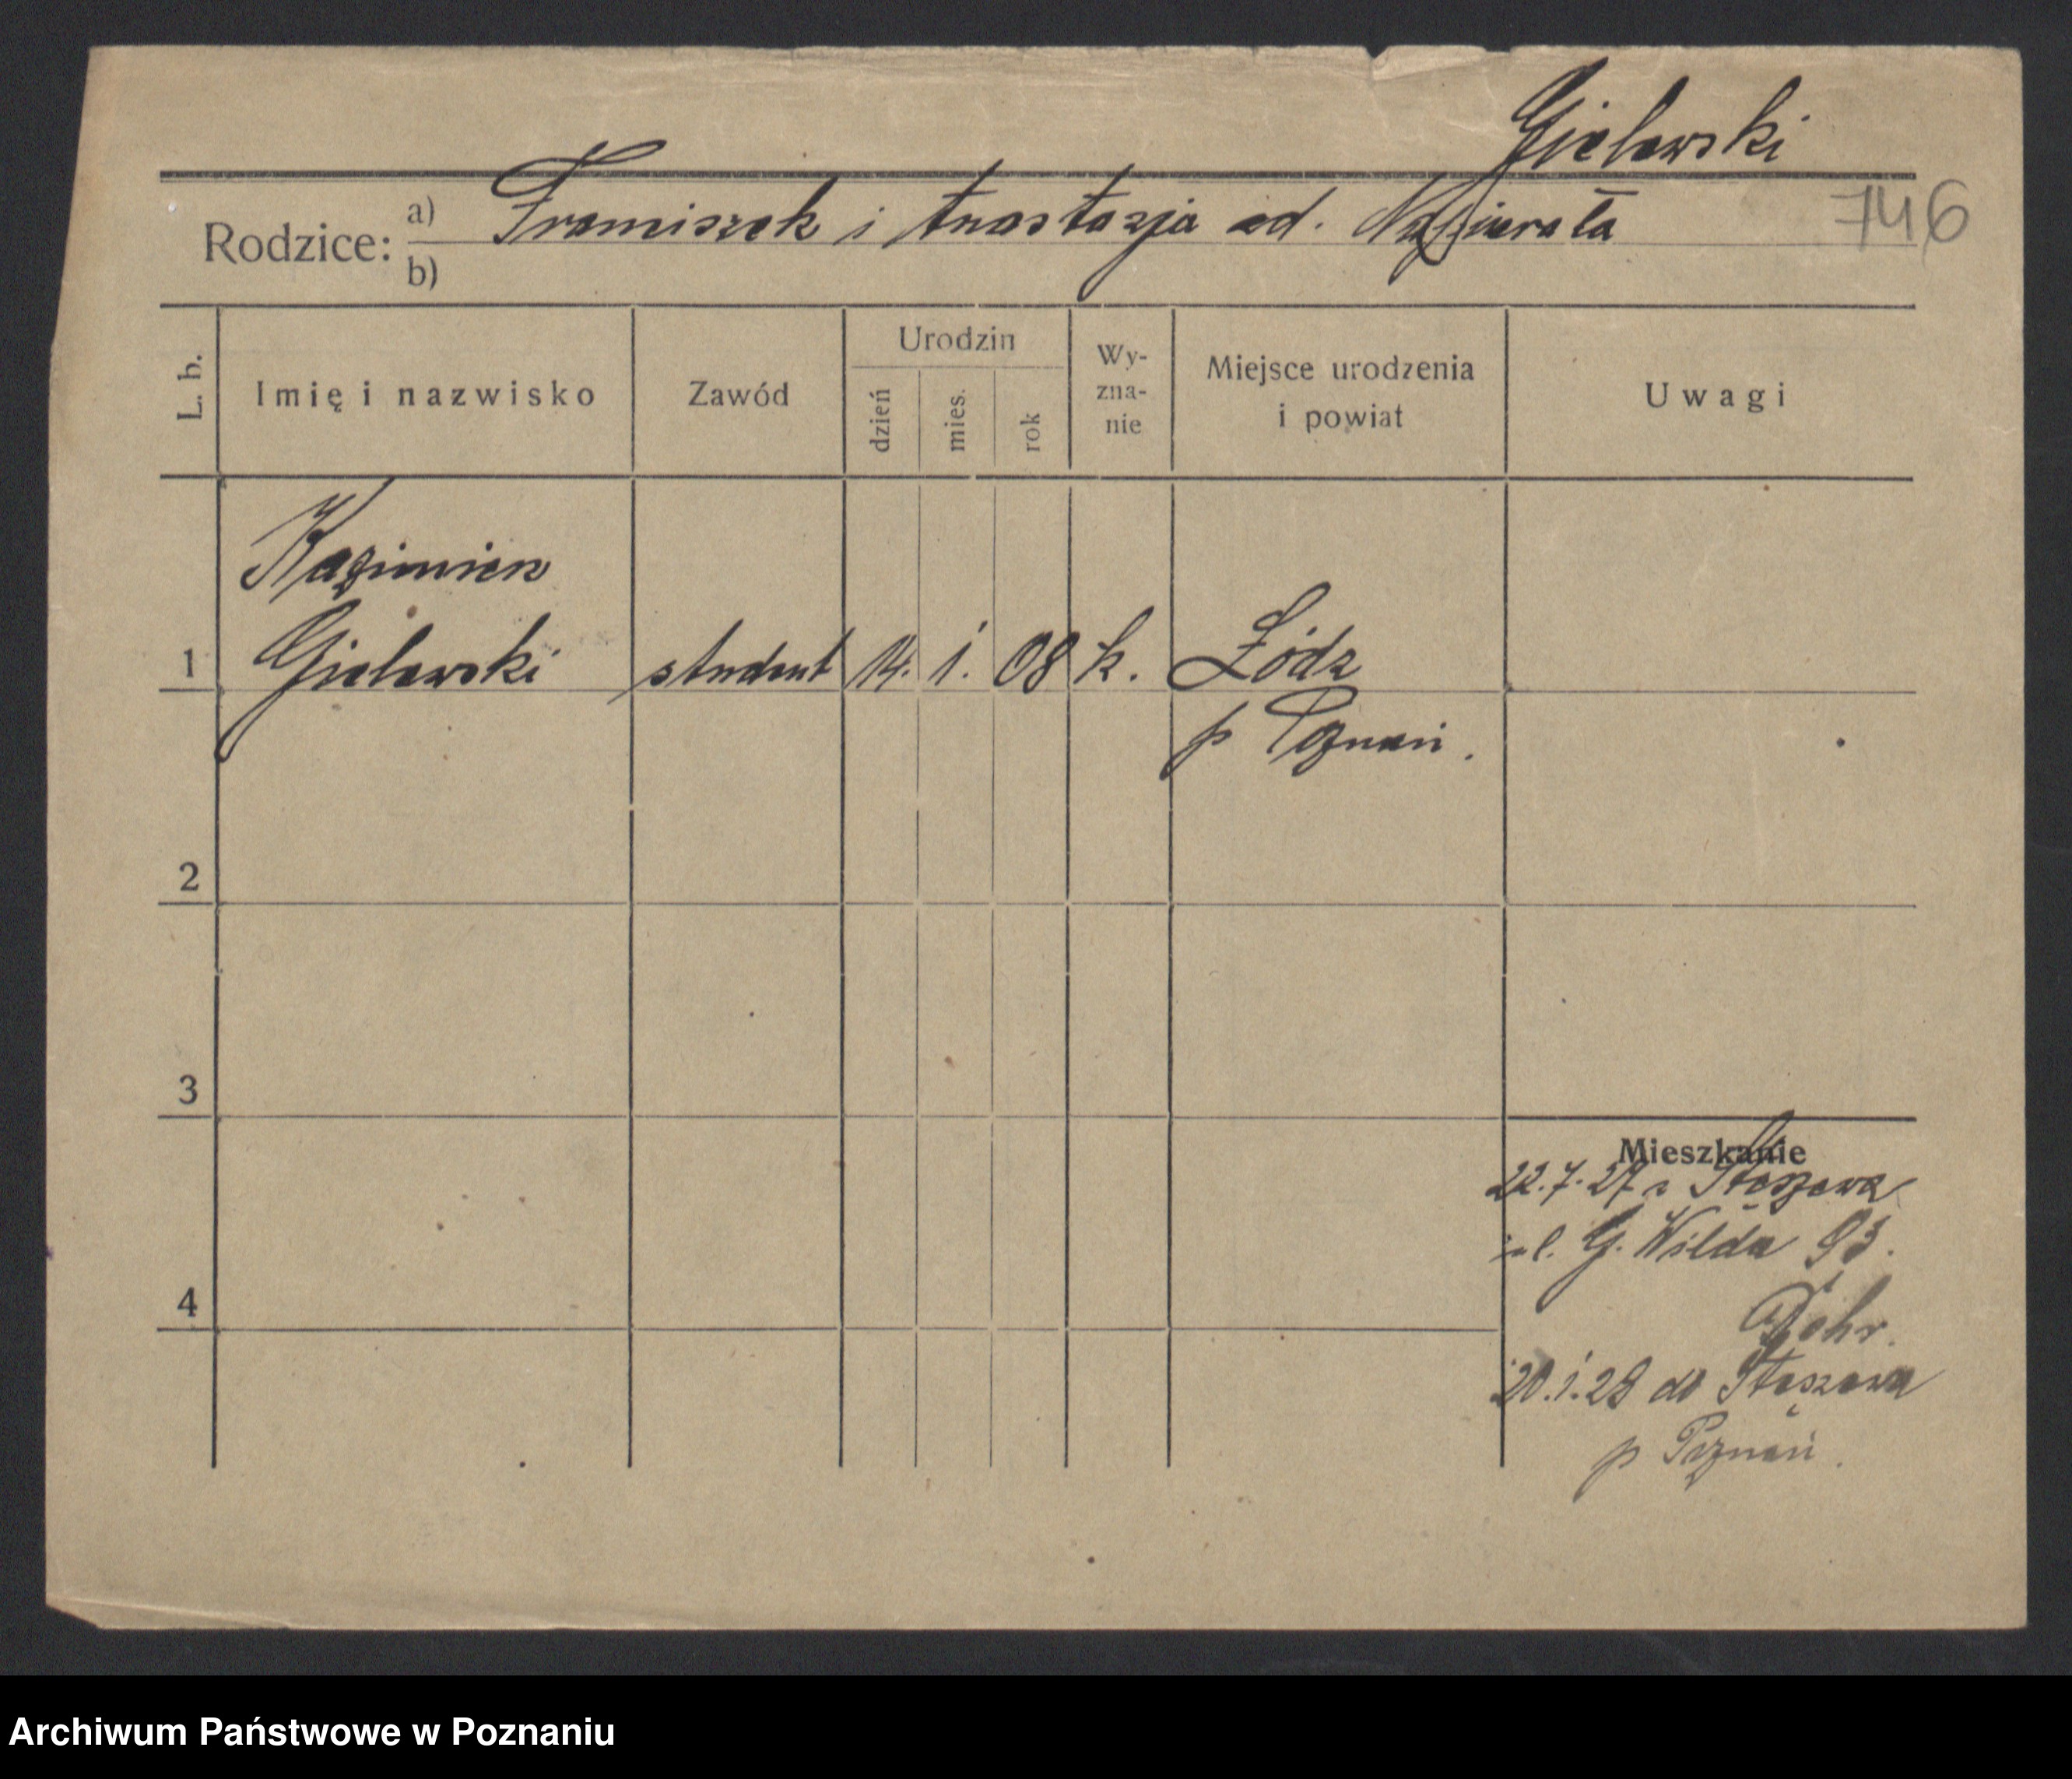 Gielewski
Rodzice: a) Franciszek i Anastazja od. Napierała
746
b)
L. b.
Imię i nazwisko
Zawód
Urodzin
dzień
mies.
rok
Wy-
zna-
nie
Miejsce urodzenia
i powiat
Uwagi
Kazimierz
1 Gielewski student 14. 1. 08 k. Łódz
p Poznań.
2
3
Mieszkanie
22.7.27 z Stęszewa
ul. G. Wilda 93.
4
20.1.28 do Stęszewa
p Poznań.
Archiwum Państwowe w Poznaniu